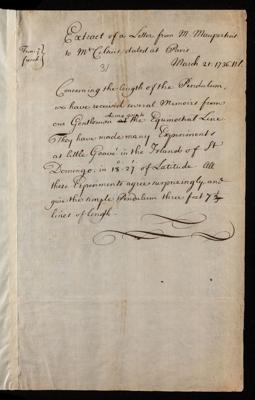 Extract of a Letter from M. Maupertuis
to Mr Celsius dated at Paris
March 21. 1736
31
Concerning the length of the Pendulum,
we have received several Memoirs from
our Gentlemen at the Equinoctial Line
They have made many Experiments
at little Goave in the Island of St
Domingo, in 18°. 27' of Latitude. All
these Experiments agree surprizingly and
give the simple Pendulum three foot 7⅓
lines of length.